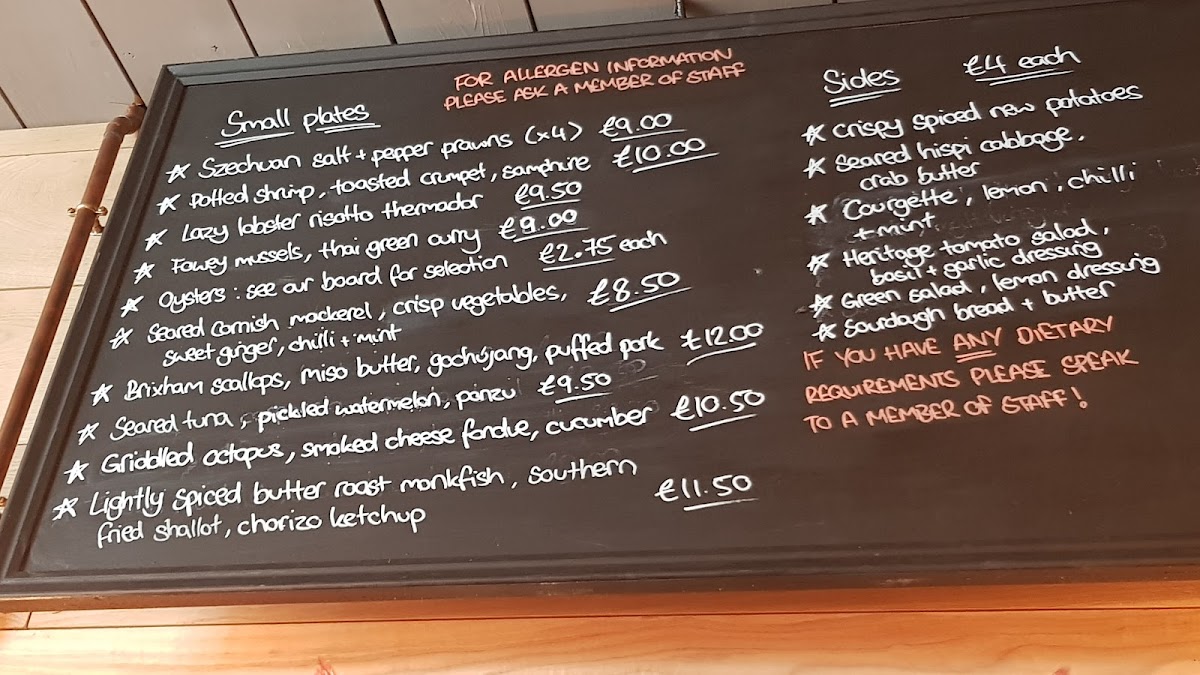 FOR ALLERGEN INFORMATION
PLEASE ASK A MEMBER OF STAFF
Small plates
Szechuan salt + pepper prawns (x4) £9.00
Potted shrimp, toasted crumpet, samphire £10.00
Lazy lobster risotto thermador £9.50
Fowey mussels, thai green curry £9.00
Oysters : see our board for selection £2.75 each
Seared Cornish mackerel, crisp vegetables, £8.50
sweet ginger, chilli + mint
Brixham scallops, miso butter, gochujang, puffed pork £12.00
Seared tuna, pickled watermelon, ponzu £9.50
Griddled octopus, smoked cheese fondue, cucumber £10.50
Lightly spiced butter roast monkfish, southern
fried shallot, chorizo ketchup £11.50
Sides £4 each
Crispy spiced new potatoes
Seared hispi cabbage,
crab butter
Courgette, lemon, chilli
+ mint
Heritage tomato salad,
basil + garlic dressing
Green salad, lemon dressing
Sourdough bread + butter
IF YOU HAVE ANY DIETARY
REQUIREMENTS PLEASE SPEAK
TO A MEMBER OF STAFF!